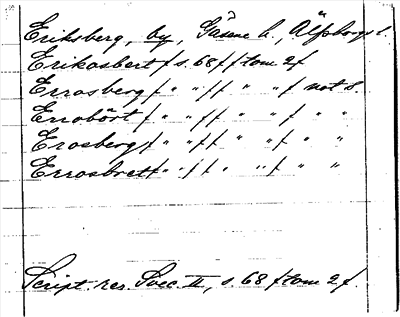 Eriksberg, by, Gäsene h., Älfsborgs l.
Erikasbert f s. 68 f f tom 2 f
Errasberg f " " f f " " f not 8.
Errobört f " " f f " " f " "
Erosberg f " " f f " " f " "
Errosbrett f " " f f " " f " "
Script. rer. Svec. II, s. 68 f tom 2 f.